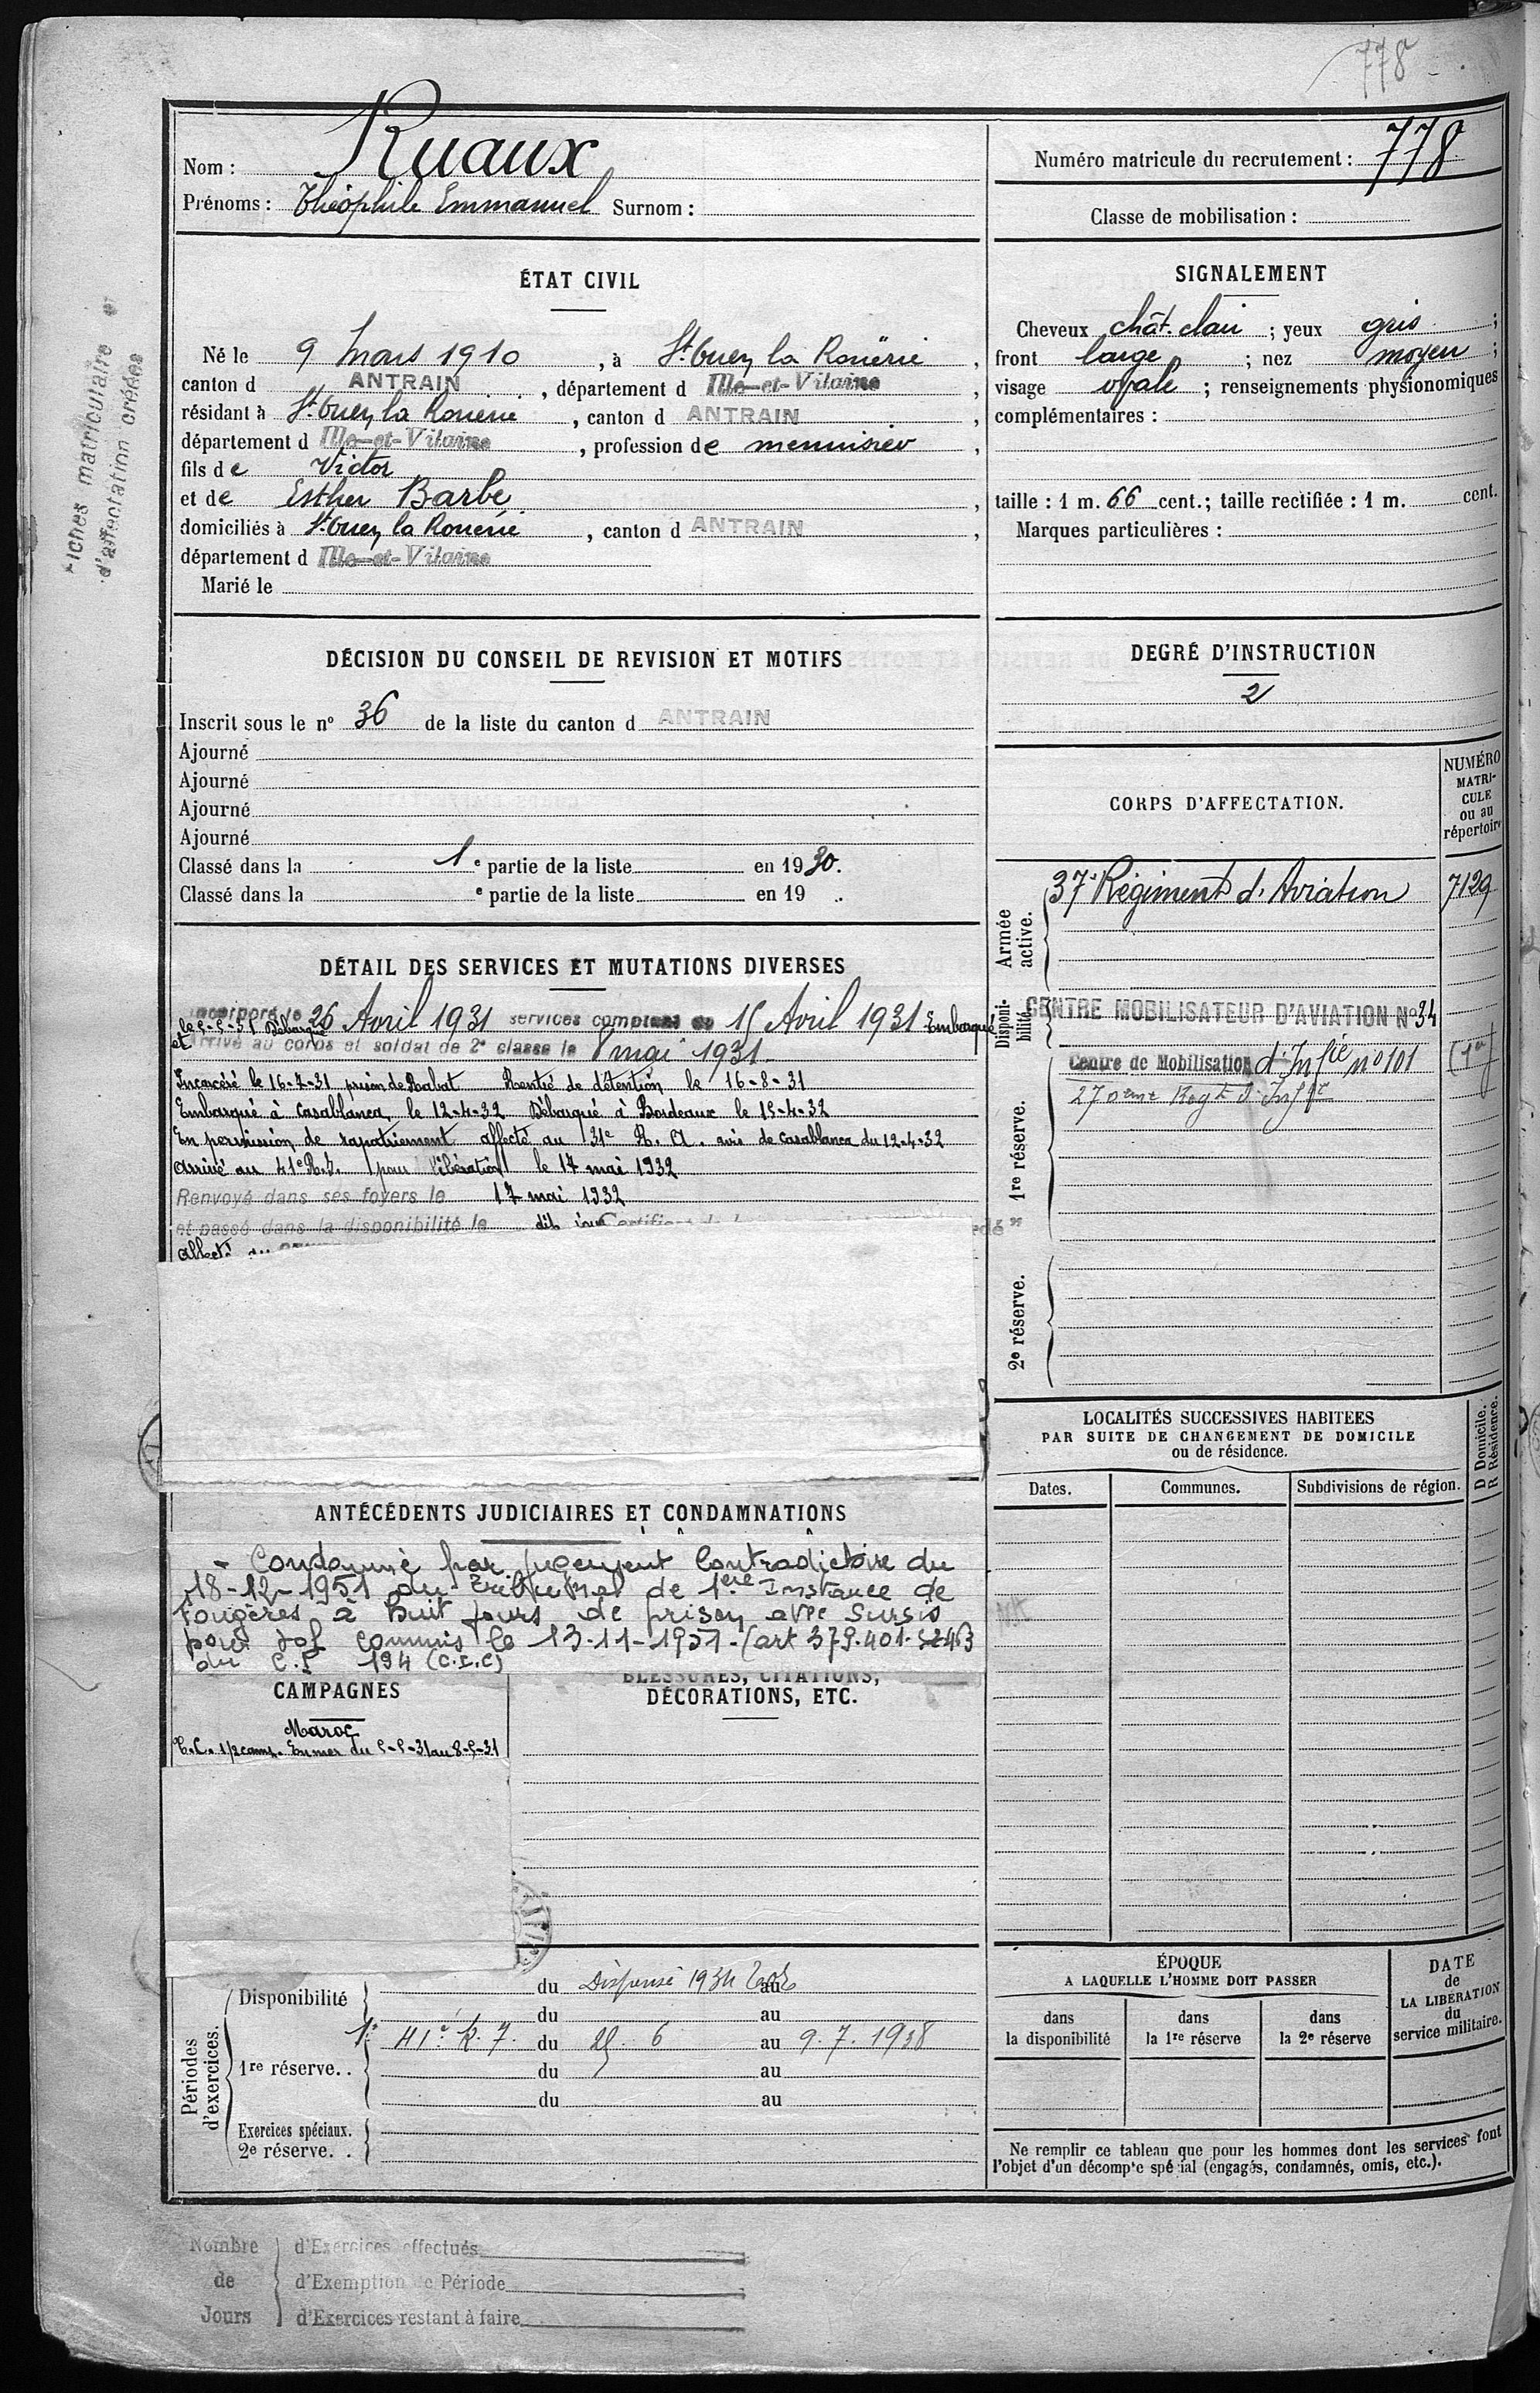 778
Nom : Ruaux
Prénoms : Théophile Emmanuel Surnom :
Numéro matricule du recrutement : 778
Classe de mobilisation :
Fiches matriculaire et
d'affectation créées
ÉTAT CIVIL
Né le 9 Mars 1910, à St Ouen la Rouërie,
canton d ANTRAIN, département d Ille-et-Vilaine,
résidant à St Ouen la Rouerie, canton d ANTRAIN,
département d Ille-et-Vilaine, profession de menuisier,
fils de Victor
et de Esther Barbé,
domiciliés à St Ouen la Rouerie, canton d ANTRAIN,
département d Ille-et-Vilaine
Marié le
SIGNALEMENT
Cheveux chât. clair ; yeux gris ;
front large ; nez moyen ;
visage ovale ; renseignements physionomiques
complémentaires :
taille : 1 m. 66 cent. ; taille rectifiée : 1 m. cent.
Marques particulières :
DÉCISION DU CONSEIL DE REVISION ET MOTIFS
Inscrit sous le nº 36 de la liste du canton d ANTRAIN
Ajourné
Ajourné
Ajourné
Ajourné
Classé dans la 1e partie de la liste en 1930.
Classé dans la e partie de la liste en 19 .
DEGRÉ D'INSTRUCTION
2
CORPS D'AFFECTATION.
NUMÉRO
MATRI-
CULE
ou au
répertoire
Armée active.
37e Régiment d'Aviation 7129
Disponi-
bilité.
CENTRE MOBILISATEUR D'AVIATION Nº 34
1re réserve.
Centre de Mobilisation d'Infie nº 101 (1er)
270eme Regt d'Infie
2e réserve.
DÉTAIL DES SERVICES ET MUTATIONS DIVERSES
Incorporé le 26 Avril 1931 services comptent du 15 Avril 1931 Embarqué
le 5-5-31 Débarqué
et Arrivé au corps et soldat de 2e classe le 8 mai 1931.
Incarcéré le 16-7-31 prison de Rabat Rentré de détention le 16-8-31
Embarqué à Casablanca le 12-4-32 Débarqué à Bordeaux le 15-4-32
En permission de rapatriement affecté au 31e R. A. avis de Casablanca du 12-4-32
Arrivé au 41e R.I. pour libération le 17 mai 1932
Renvoyé dans ses foyers le 17 mai 1932
et passé dans la disponibilité le dit jour
Affecté au
LOCALITÉS SUCCESSIVES HABITEES
PAR SUITE DE CHANGEMENT DE DOMICILE
ou de résidence.
D Domicile.
R Résidence.
Dates. Communes. Subdivisions de région.
ANTÉCÉDENTS JUDICIAIRES ET CONDAMNATIONS
- Condamné par jugement Contradictoire du
18-12-1951 du Tribunal de 1ère Instance de
Fougères à huit jours de prison avec Sursis
pour vol commis le 13-11-1951 - (art 379.401. 52 463
du C.P 194 (C.I.C)
CAMPAGNES
Maroc
T.C. 1/2 camp. En mer du 5-5-31 au 8-5-31
BLESSURES, CITATIONS,
DÉCORATIONS, ETC.
Périodes
d'exercices.
Disponibilité du Dispensé 1934 au
du au
1re réserve. . 1e 41e R. I. du 25. 6 au 9. 7. 1938
du au
du au
Exercices spéciaux.
2e réserve. .
ÉPOQUE
A LAQUELLE L'HOMME DOIT PASSER
dans
la disponibilité
dans
la 1re réserve
dans
la 2e réserve
DATE
de
LA LIBÉRATION
du
service militaire.
Ne remplir ce tableau que pour les hommes dont les services font
l'objet d'un décompte spécial (engagés, condamnés, omis, etc.).
Nombre
de
Jours
d'Exercices effectués
d'Exemption de Période
d'Exercices restant à faire